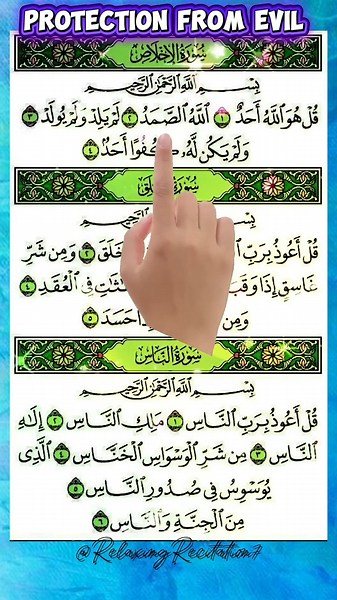 PROTECTION FROM EVIL
سُورَةُ الإِخْلَاصِ
بِسْمِ اللَّهِ الرَّحْمَٰنِ الرَّحِيمِ
قُلْ هُوَ اللَّهُ أَحَدٌ ١ اللَّهُ الصَّمَدُ ٢ لَمْ يَلِدْ وَلَمْ يُولَدْ ٣
وَلَمْ يَكُن لَّهُ كُفُوًا أَحَدٌ ٤
سُورَةُ
بِسْمِ
قُلْ أَعُوذُ بِرَبِّ خَلَقَ ٢ وَمِن شَرِّ
غَاسِقٍ إِذَا وَقَبَ فِي الْعُقَدِ ٤
وَمِن حَسَدَ ٥
سُورَةُ النَّاسِ
بِسْمِ اللَّهِ الرَّحْمَٰنِ الرَّحِيمِ
قُلْ أَعُوذُ بِرَبِّ النَّاسِ ١ مَلِكِ النَّاسِ ٢ إِلَٰهِ
النَّاسِ ٣ مِن شَرِّ الْوَسْوَاسِ الْخَنَّاسِ ٤ الَّذِي
يُوَسْوِسُ فِي صُدُورِ النَّاسِ ٥
مِنَ الْجِنَّةِ وَالنَّاسِ ٦
@RelaxingRecitation7